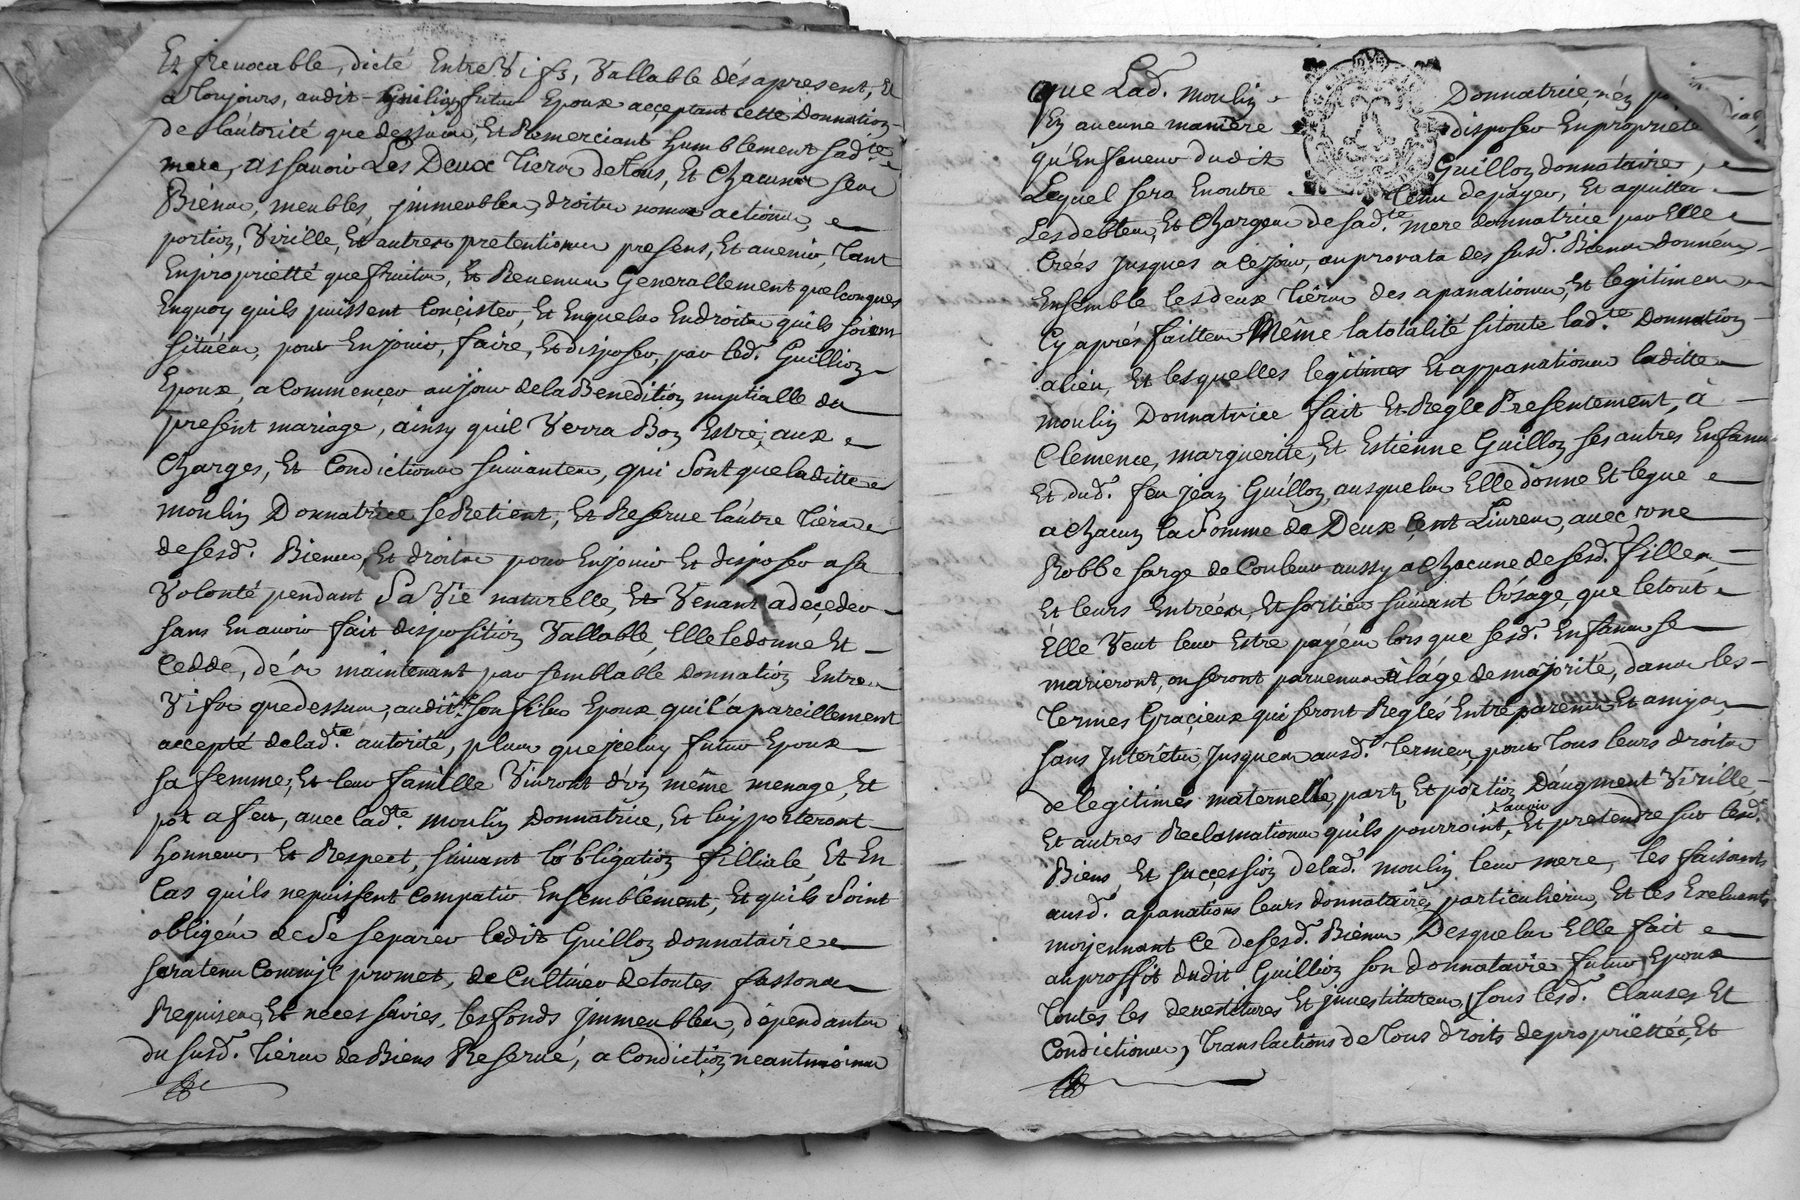 Et jrrevocable, dicté Entre Vifs, Vallable dés apresent, Et
a Toujours, audit Guilloz futur Epoux acceptant cette Donnation
de lautorité que dessus, Et Remerciant humblement sad.te
mere, assavoir Les Deux Tiers de Tous, Et Chacuns ses
Biéns, meubles, jmmeubles, droits noms actions,
portion, Virille, Et autres pretentions presens, Et avenir, Tant
En proprietté que fruits, Et Revenus Generallement quelconques
En quoy quils puissent Conçister, Et En quels Endroits quils soient
situés, pour En jouir, faire, Et disposer, par led. Guillioz
Epoux, a Commencer au jour de la Beneditión nuptialle du
present mariage, ainsy quil Verra Bon Estre, aux
Charges, Et Condictions suivantes, qui sont que laditte
moulin Donnatrice se Retient, Et Reserve lautre Tiers
de sesd. Biens, Et droits pour En jouir Et disposer a sa
Volonté pendant Sa Vie naturelle, Et Venant a deçeder
sans En avoir fait disposition Vallable, Elle le donne Et
Cedde, dés maintenant par semblable Donnation Entre
Vifs que dessus, audit son fils Epoux qui l'a pareillement
accepté de lad.te autorité, plus que jceluy futur Epoux
sa femme, Et leur famille Vivront d'un même menage, Et
pot a feu, avec lad.te moulin Donnatrice, Et luy porteront
honneur, Et Respect, suivant lobligation filliale, Et En
Cas quils ne puissent Compatir Ensemblement, Et quils Soint
obligés de Se separer ledit Guilloz donnataire
sera tenu Comme jl promet, de Cultiver de toutes fassons
Requises, Et necessaires, les fonds jmmeubles, dépendants
du susd. Tiérs de Biens Reservé, a Condiction neantmoins
que Lad. moulin Donnatrice, n'en
En aucune maniere disposer En proprieté
qu'En faveur dudit Guilloz donnataire,
Lequel sera En outre Tenu de payer, Et aquitter
Les debtes, Et Charges de sad.te mere donnatrice par Elle
Créés jusques a Ce jour, au prorata des susd. Biens donnés,
Ensemble les deux Tiérs des apanations, Et legitimes
Cy aprés faittes Même la totalité si toute lad.te Donnation
a lieu, Et lesquelles legitimes Et appanations laditte
moulin Donnatrice fait Et Regle Presentement, à
Clemence, marguerite, Et Estienne Guilloz ses autres Enfans
Et dud. feu jean Guilloz, ausquels Elle donne Et legue
a Chacun la Somme de Deux Cent Livres, avec une
Robbe sarge de Couleur aussy a Chacune de sesd. filles,
Et leurs Entrées, Et sorties suivant l'usage, que le tout
Elle Veut leur Estre payés lors que sesd. Enfans se
marieront, ou seront parvenus à lâge de majorité, dans les
Termes Gracieux qui seront Reglés Entre parens Et amys,
sans Jnteréts jusques ausd. Termes, pour Tous leurs droits
de legitimes maternelle, part, Et portion Daugment Virille,
avoir
Et autres Reclamations quils pourroint, Et pretendre sur lesd.
Biens, Et succession de lad. moulin leur mere, les faisants
ausd. apanations leurs donnataires particuliers, Et les Excluants
moyennant Ce de sesd. Biéns, Desquels Elle fait
au proffit dudit Guillioz son donnataire futur Epoux
Toutes les devestitures Et jnvestitures, sous lesd. Clauses Et
Condictions, Translactions de Tous droits de proprietté, Et